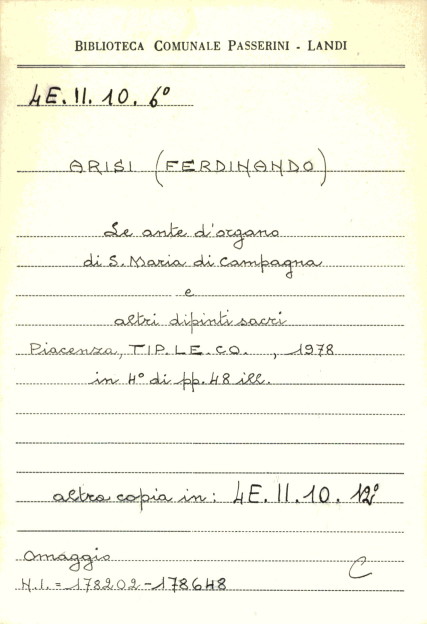 BIBLIOTECA COMUNALE PASSERINI - LANDI
4E. II. 10. 6°
ARISI (FERDINANDO)
Le ante d'organo
di S. Maria di Campagna
e
altri dipinti sacri
Piacenza, TIP.LE.CO. , 1978
in 4° di pp. 48 ill.
altra copia in: 4E. II. 10. 12°
Omaggio
N.I. = 178202-178648
C